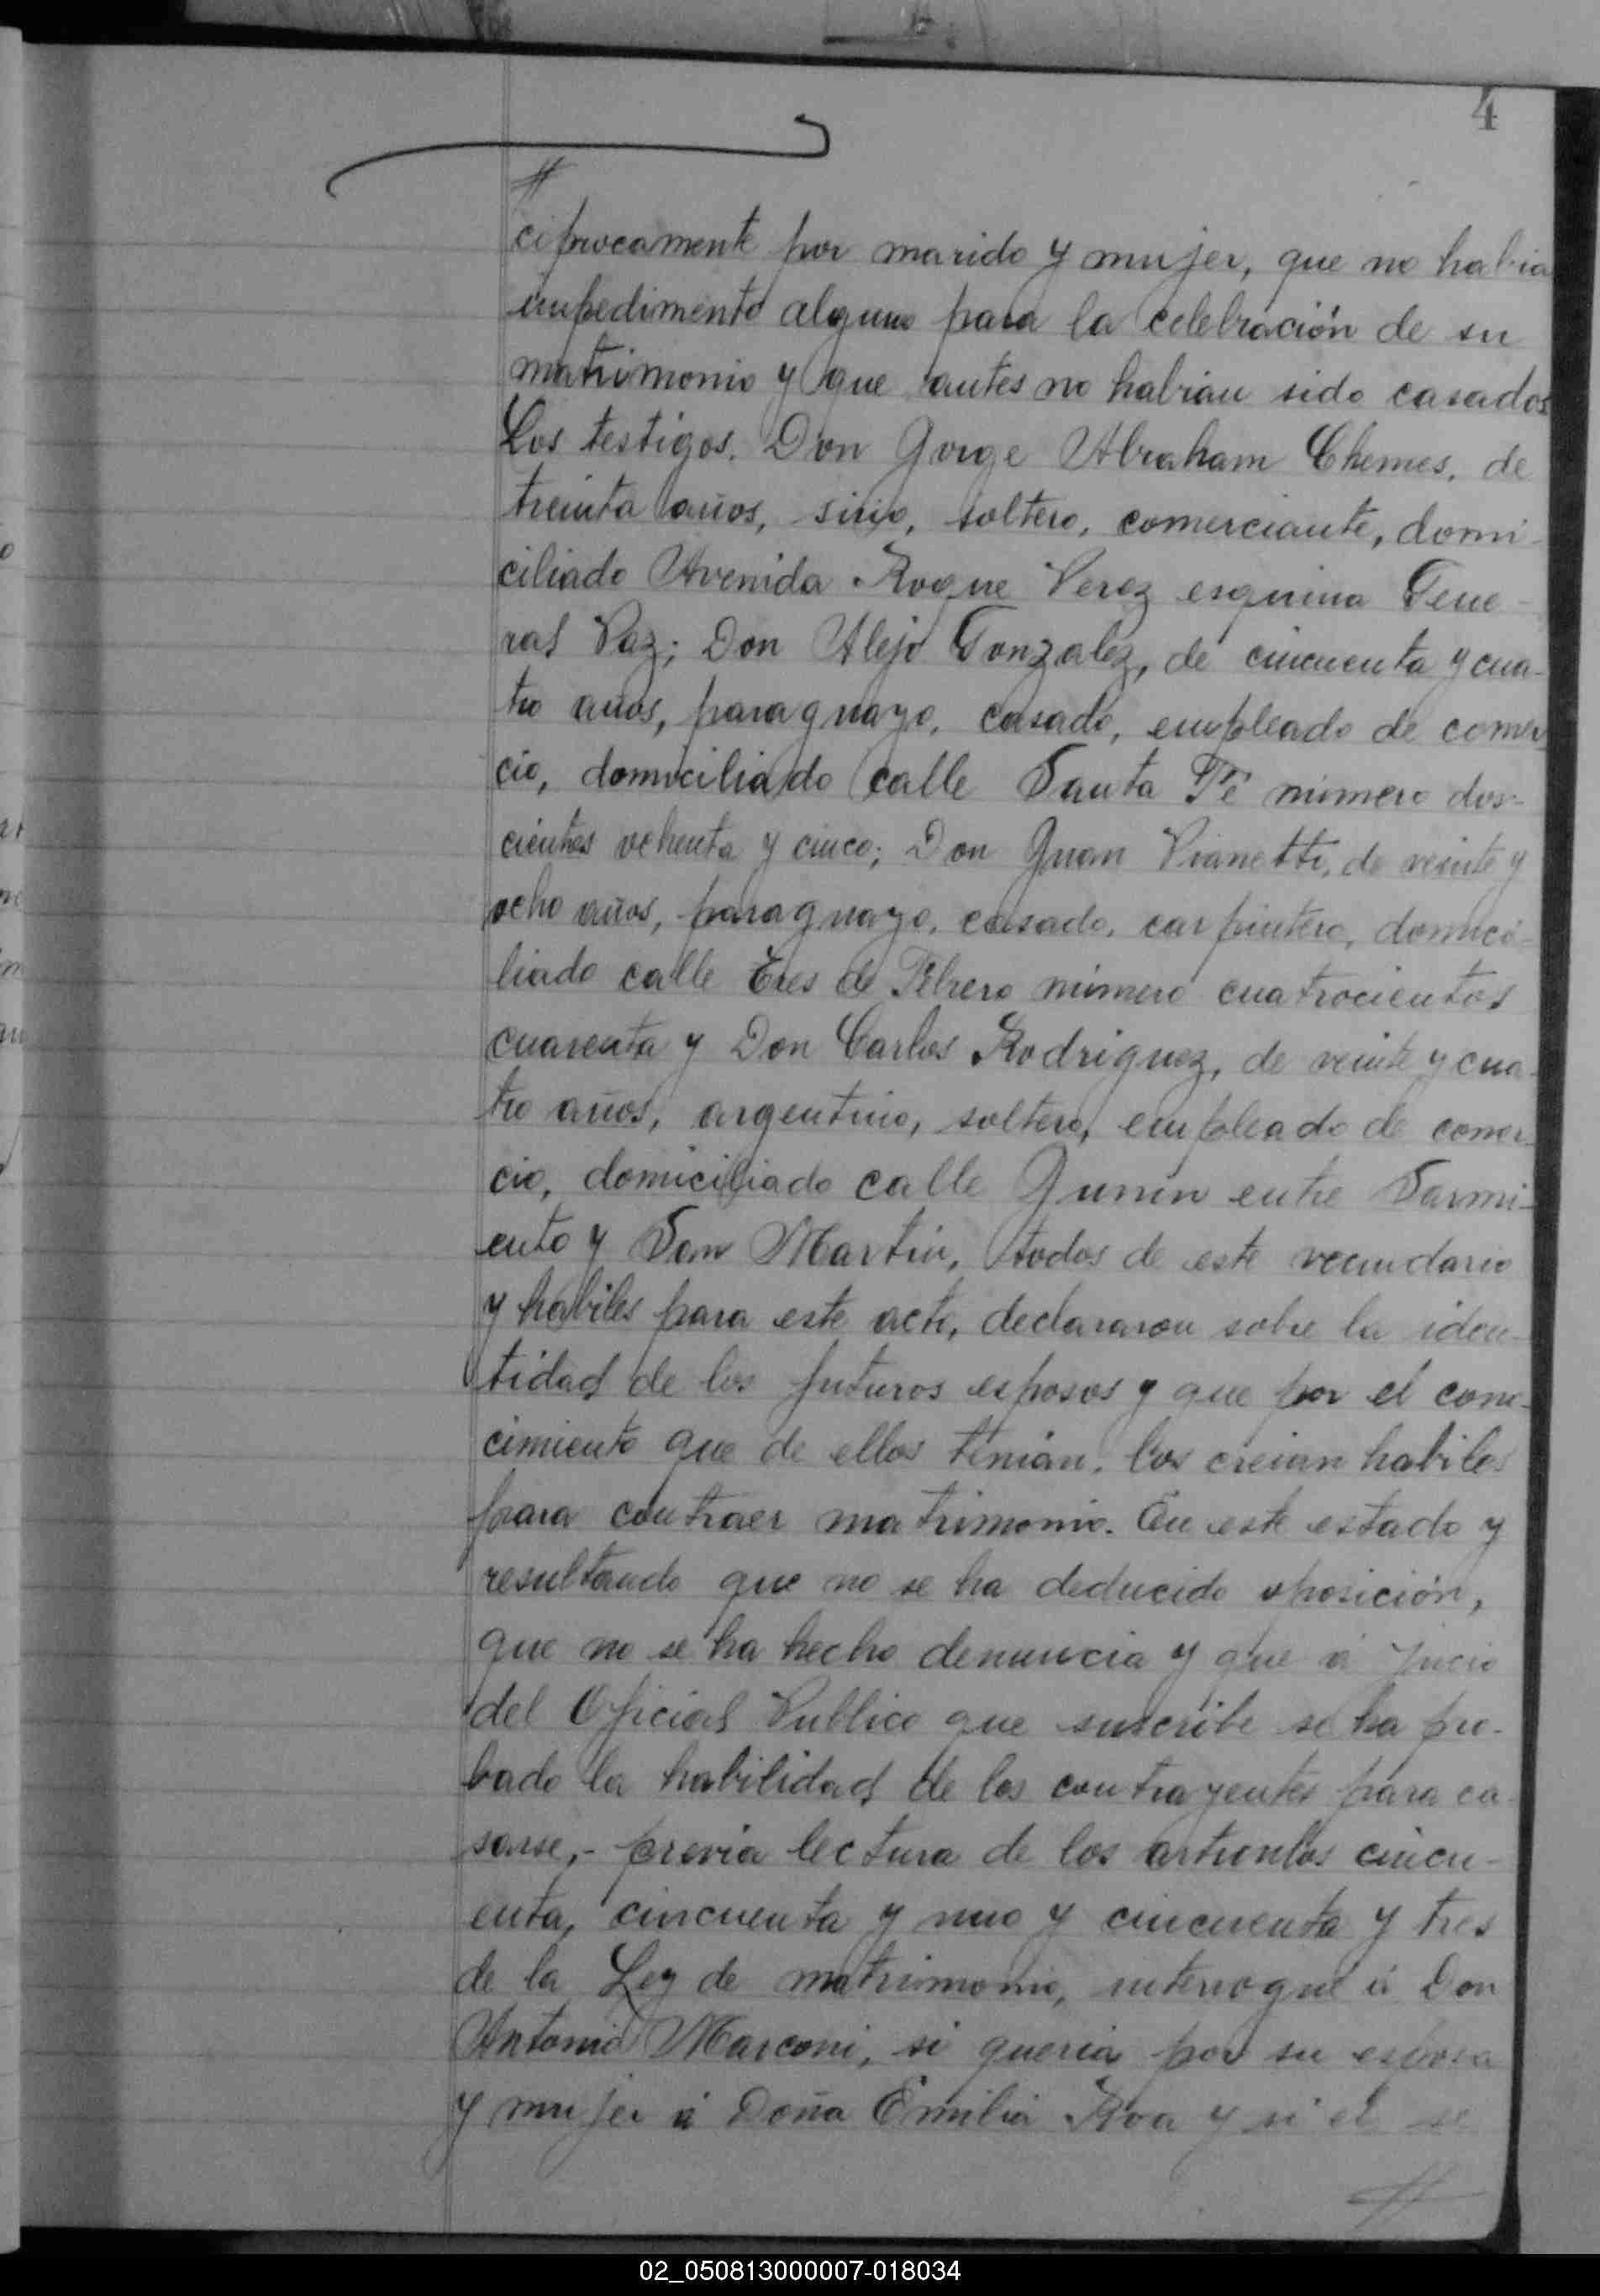 4
ciprocamente por marido y mujer, que no habia
impedimento alguno para la celebración de su
matrimonio y que antes no habian sido casados
Los testigos. Don Jorge Abraham Chemes, de
treinta años, sirio, soltero, comerciante, domi-
ciliado Avenida Roque Perez esquina Gene-
ral Paz; Don Alejo Gonzalez, de cincuenta y cua-
tro años, paraguayo, casado, empleado de comer
cio, domiciliado calle Santa Fé número dos-
cientos ochenta y cinco; Don Juan Vianetti, de veinte y
ocho años, paraguayo, casado, carpintero, domici-
liado calle Tres de Febrero número cuatrocientos
cuarenta y Don Carlos Rodriguez, de veinte y cua-
tro años, argentino, soltero, empleado de comer-
cio, domiciliado calle Junin entre Sarmi-
ento y San Martin, todos de este vecindario
y habiles para este acto, declararon sobre la iden-
tidad de los futuros esposos y que por el cono-
cimiento que de ellos tenian, los creian habiles
para contraer matrimonio. En este estado y
resultando que no se ha deducido oposición,
que no se ha hecho denuncia y que á juicio
del Oficial Publico que suscribe se ha pro-
bado la habilidad de los contrayentes para ca-
sarse,- previa lectura de los articulos cincu-
enta, cincuenta y uno y cincuenta y tres
de la Ley de matrimonio, interrogué á Don
Antonio Marconi, si queria por su esposa
y mujer á Doña Emilia Roa y si el se
02_050813000007-018034